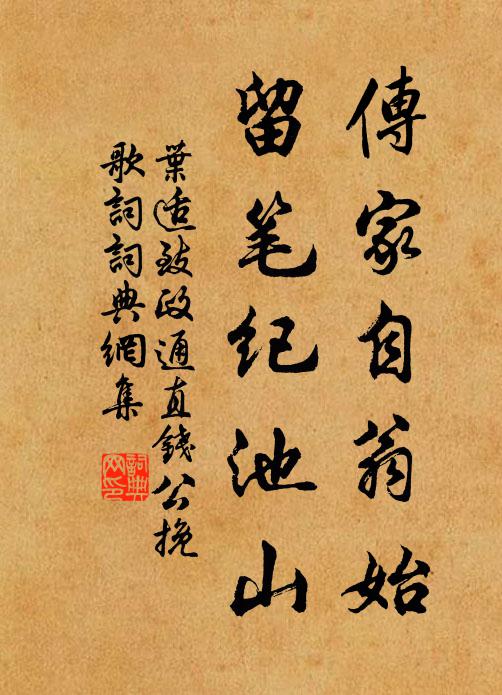 傳家自翁始
留笔纪池山
葉适致政通直錢公挽
歌詞詞典網集
詞典
网印